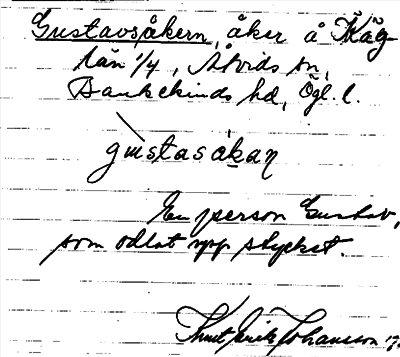 Gustavsåkern, åker å Käg-
län 1/4, Åtvids sn,
Bankekinds hd, Ögl. l.
gustasåkaɳ
En person Gustav,
som odlat upp stycket.
Knut Erik Johansson